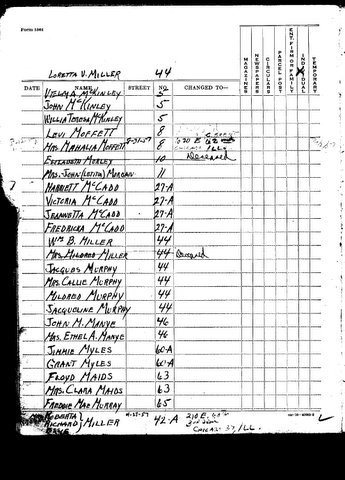 Form 1564
MAGAZINES
NEWSPAPERS
CIRCULARS
PARCEL POST
ENT. FIRM OR FAMILY
INDIVIDUAL
TEMPORARY
LORETTA V. MILLER 44
DATE NAME STREET NO. CHANGED TO—
VELMA MCKINLEY 5
JOHN MCKINLEY 5
WILLIA TERESA MCKINLEY 5
LEVI MOFFETT 8
MRS MAHALIA MOFFETT 8-31-57 8 630 E.
ELIZABETH MORLEY 10 Deceased
MRS. JOHN (LETITIA) MORGAN 11
HARRIETT MCCADD 27-A
VICTORIA MCCADD 27-A
JEANNETTA MCCADD 27-A
FREDRICKA MCCADD 27-A
WM B. MILLER 44
MRS. MILDRED MILLER 44 Deceased
JACQUES MURPHY 44
MRS. CALLIE MURPHY 44
MILDRED MURPHY 44
JACQUELINE MURPHY 44
JOHN M. MANYE 46
MRS. ETHEL A. MANYE 46
JIMMIE MYLES 60-A
GRANT MYLES 60-A
FLOYD MAIDS 63
MRS. CLARA MAIDS 63
FREDDIE MAE MURRAY 65
ROBERTA
RICHARD MILLER 42-A 218 E.
CHICAGO 37, ILL.